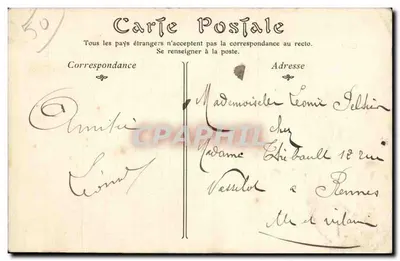 50
Carte Postale
Tous les pays étrangers n'acceptent pas la correspondance au recto.
Se renseigner à la poste.
Correspondance
Adresse
Amitié
Léonie
Mademoiselle Léonie
chez
Madame Thébault 12 rue
Vasselot a Rennes
Ille et vilaine
CPAPHIL.COM